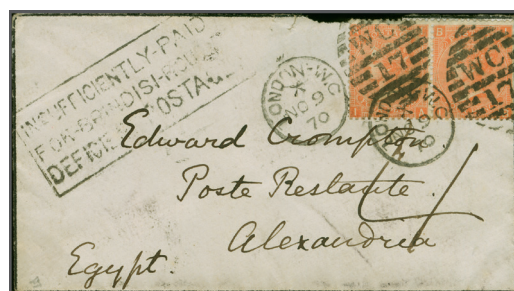 INSUFFICIENTLY-PAID
FOR-BRINDISI-ROUTE
DEFICIENT POSTAGE
LONDON-W.C
X
NO 9
70
WC
17
WC
17
LONDON-W.C
Edward Crompton
Poste Restante.
Alexandria
Egypt.